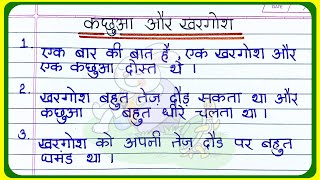 कछुआ और खरगोश
1. एक बार की बात है, एक खरगोश और
एक कछुआ दोस्त थे।
2. खरगोश बहुत तेज़ दौड़ सकता था और
कछुआ बहुत धीरे चलता था।
3. खरगोश को अपनी तेज़ दौड़ पर बहुत
घमंड था।